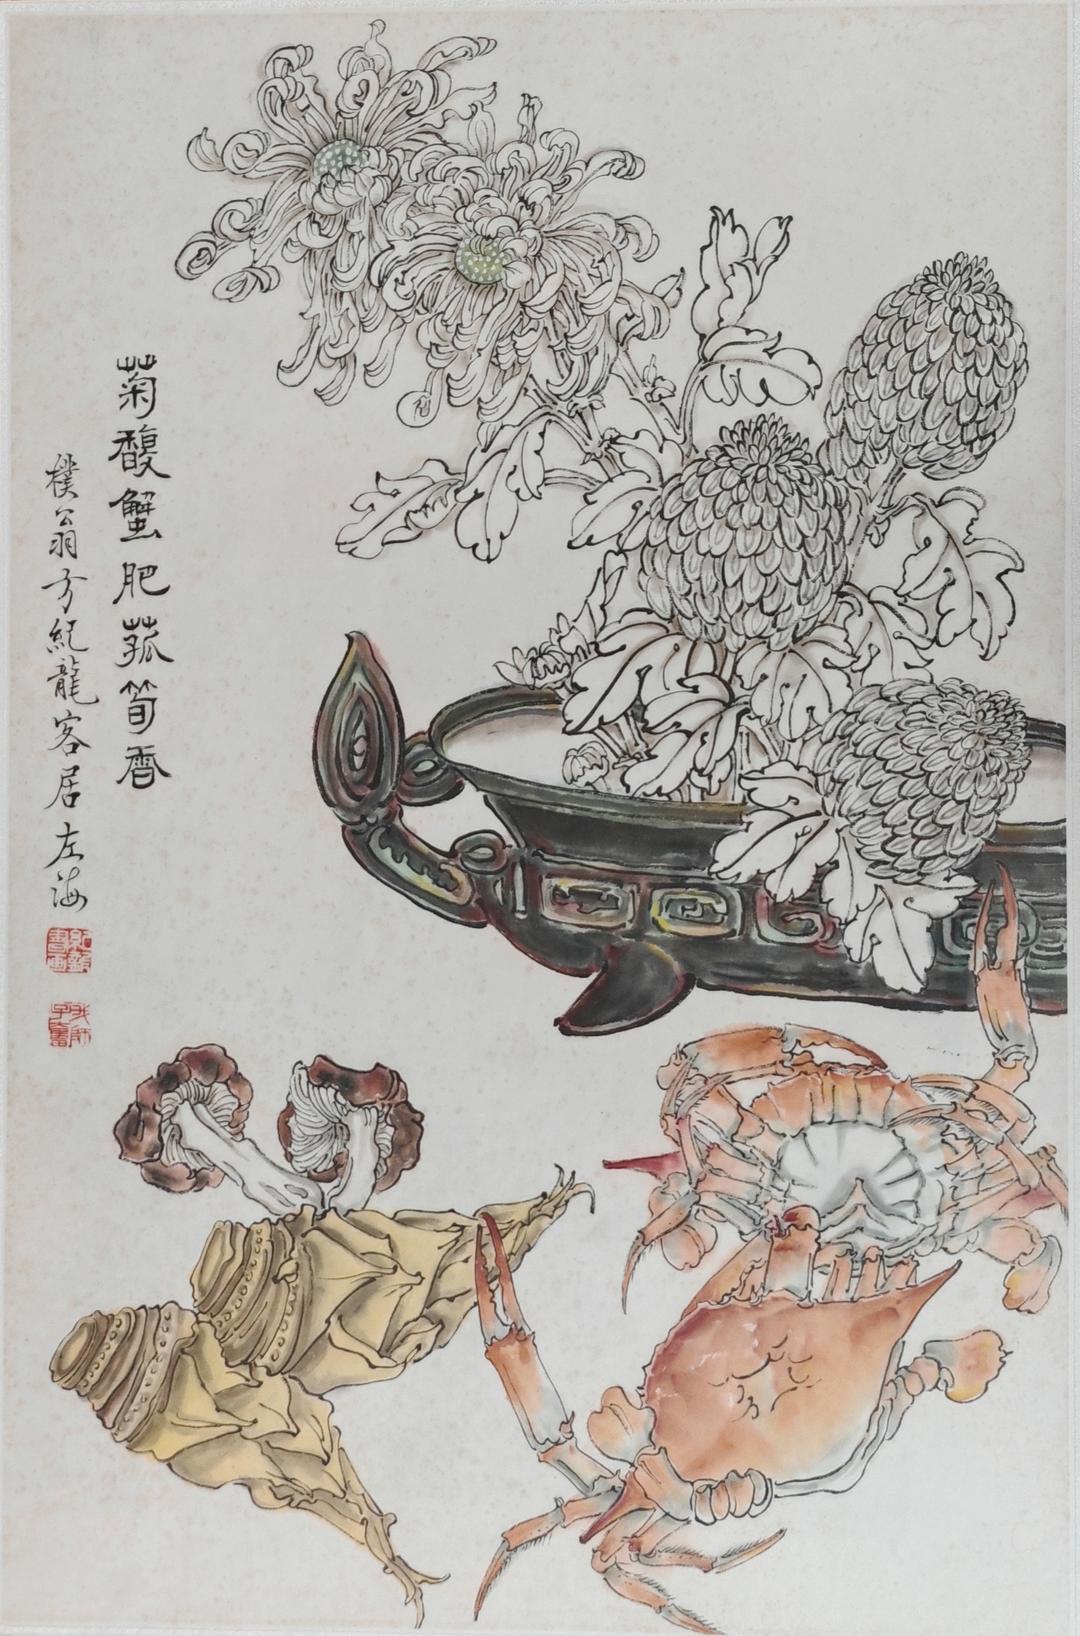 菊馥蟹肥菰筍香
樸翁方紀龍客居左海